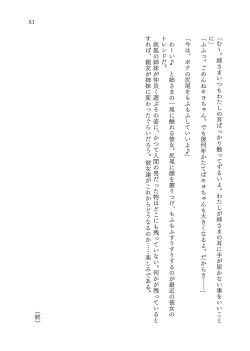 51
「むー。姉さまいつもわたしの耳ばっかり触ってずるいよ。わたしが姉さまの耳に手が届かない事をいいこと
に」
「ふふっ。ごめんねキヨちゃん。でも後何年かたてばキヨちゃんも大きくなるよ。だからさ……」
「今は、ボクの尻尾をもふもふしていいよ♪」
わーい♪　と姉さまの一尾に触れる彼女。尻尾に顔を擦りつけ、もふもふすりすりするのが最近の彼女の
トレンドだ。
妖狐の姉妹が仲良く遊ぶその姿に、かつて人間の男だった物はどこにも残っていない。何かが残っていると
すれば、親友が姉妹に変わったぐらいだろう。彼女達がこれからどうなるのか……楽しみである。
（終）